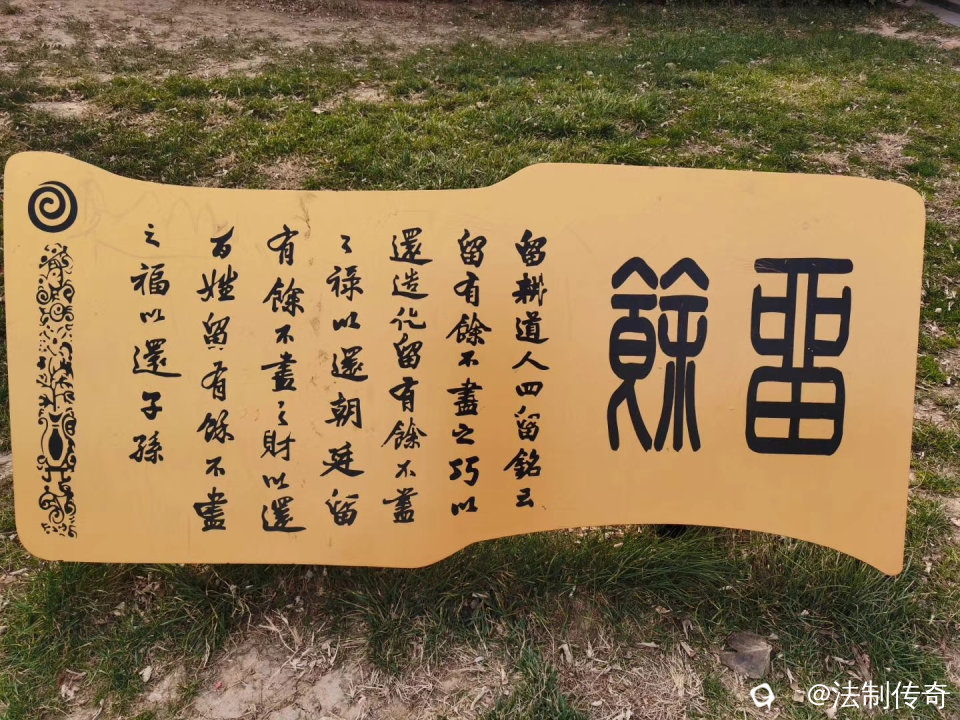 留餘
留耕道人四留銘云
留有餘不盡之巧以
還造化留有餘不盡
之祿以還朝廷留
有餘不盡之財以還
百姓留有餘不盡
之福以還子孫
@法制传奇